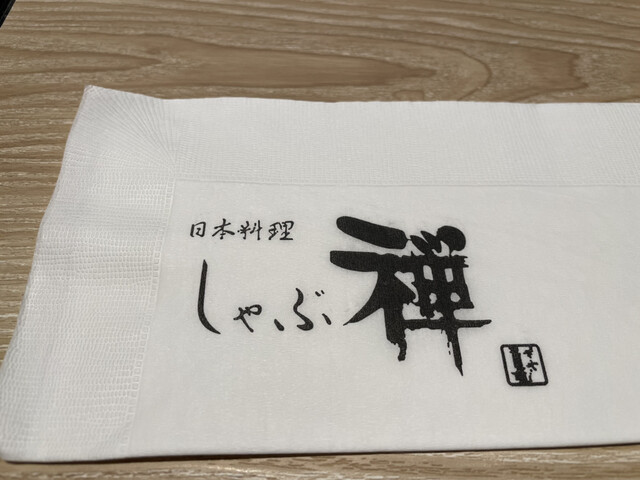 日本料理
しゃぶ禅